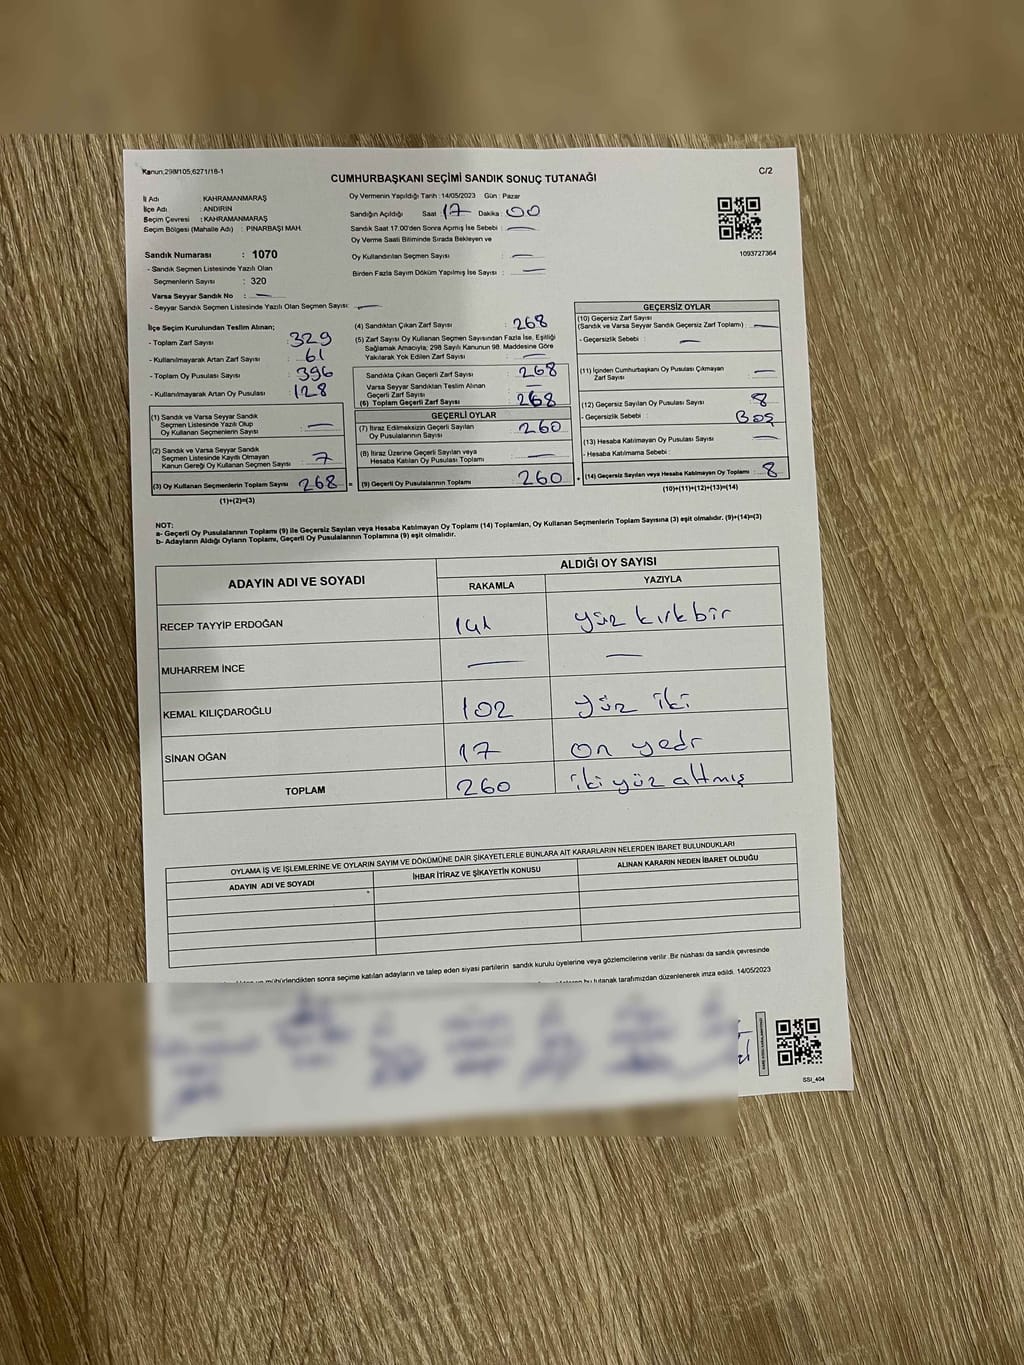 Kanun;298/105,6271/18-1
CUMHURBAŞKANI SEÇİMİ SANDIK SONUÇ TUTANAĞI
C/2
İl Adı : KAHRAMANMARAŞ
İlçe Adı : ANDIRIN
Seçim Çevresi : KAHRAMANMARAŞ
Seçim Bölgesi (Mahalle Adı) : PINARBAŞI MAH.
Oy Vermenin Yapıldığı Tarih : 14/05/2023 Gün : Pazar
Sandığın Açıldığı Saat 17 Dakika : 00
Sandık Saat 17.00'den Sonra Açımış İse Sebebi : —
Oy Verme Saati Bitiminde Sırada Bekleyen ve
Oy Kullandırılan Seçmen Sayısı : —
Birden Fazla Sayım Döküm Yapılmış İse Sayısı : —
1093727364
Sandık Numarası : 1070
- Sandık Seçmen Listesinde Yazılı Olan
Seçmenlerin Sayısı : 320
Varsa Seyyar Sandık No : —
- Seyyar Sandık Seçmen Listesinde Yazılı Olan Seçmen Sayısı: —
İlçe Seçim Kurulundan Teslim Alınan;
- Toplam Zarf Sayısı : 329
- Kullanılmayarak Artan Zarf Sayısı : 61
- Toplam Oy Pusulası Sayısı : 396
- Kullanılmayarak Artan Oy Pusulası : 128
(1) Sandık ve Varsa Seyyar Sandık
Seçmen Listesinde Yazılı Olup
Oy Kullanan Seçmenlerin Sayısı : —
(2) Sandık ve Varsa Seyyar Sandık
Seçmen Listesinde Kayıtlı Olmayan
Kanun Gereği Oy Kullanan Seçmen Sayısı : 7
(3) Oy Kullanan Seçmenlerin Toplam Sayısı : 268 =
(1)+(2)=(3)
(4) Sandıktan Çıkan Zarf Sayısı : 268
(5) Zarf Sayısı Oy Kullanan Seçmen Sayısından Fazla İse, Eşitliği
Sağlamak Amacıyla; 298 Sayılı Kanunun 98. Maddesine Göre
Yakılarak Yok Edilen Zarf Sayısı : —
Sandıkta Çıkan Geçerli Zarf Sayısı : 268
Varsa Seyyar Sandıktan Teslim Alınan
Geçerli Zarf Sayısı : —
(6) Toplam Geçerli Zarf Sayısı : 268
GEÇERLİ OYLAR
(7) İtiraz Edilmeksizin Geçerli Sayılan
Oy Pusulalarının Sayısı : 260
(8) İtiraz Üzerine Geçerli Sayılan veya
Hesaba Katılan Oy Pusulası Toplamı : —
(9) Geçerli Oy Pusulalarının Toplamı : 260 +
GEÇERSİZ OYLAR
(10) Geçersiz Zarf Sayısı
(Sandık ve Varsa Seyyar Sandık Geçersiz Zarf Toplamı) : —
- Geçersizlik Sebebi : —
(11) İçinden Cumhurbaşkanı Oy Pusulası Çıkmayan
Zarf Sayısı : —
(12) Geçersiz Sayılan Oy Pusulası Sayısı : 8
- Geçersizlik Sebebi : Boş
(13) Hesaba Katılmayan Oy Pusulası Sayısı : —
- Hesaba Katılmama Sebebi :
(14) Geçersiz Sayılan veya Hesaba Katılmayan Oy Toplamı : 8
(10)+(11)+(12)+(13)=(14)
NOT:
a- Geçerli Oy Pusulalarının Toplamı (9) ile Geçersiz Sayılan veya Hesaba Katılmayan Oy Toplamı (14) Toplamları, Oy Kullanan Seçmenlerin Toplam Sayısına (3) eşit olmalıdır. (9)+(14)=(3)
b- Adayların Aldığı Oyların Toplamı, Geçerli Oy Pusulalarının Toplamına (9) eşit olmalıdır.
ADAYIN ADI VE SOYADI
ALDIĞI OY SAYISI
RAKAMLA YAZIYLA
RECEP TAYYİP ERDOĞAN 141 yüz kırk bir
MUHARREM İNCE — —
KEMAL KILIÇDAROĞLU 102 yüz iki
SİNAN OĞAN 17 on yedi
TOPLAM 260 iki yüz altmış
OYLAMA İŞ VE İŞLEMLERİNE VE OYLARIN SAYIM VE DÖKÜMÜNE DAİR ŞİKAYETLERLE BUNLARA AİT KARARLARIN NELERDEN İBARET BULUNDUKLARI
ADAYIN ADI VE SOYADI İHBAR İTİRAZ VE ŞİKAYETİN KONUSU ALINAN KARARIN NEDEN İBARET OLDUĞU
mühürlendikten sonra seçime katılan adayların ve talep eden siyasi partilerin sandık kurulu üyelerine veya gözlemcilerine verilir. Bir nüshası da sandık çevresinde
bu tutanak tarafımızdan düzenlenerek imza edildi. 14/05/2023
SSI_404